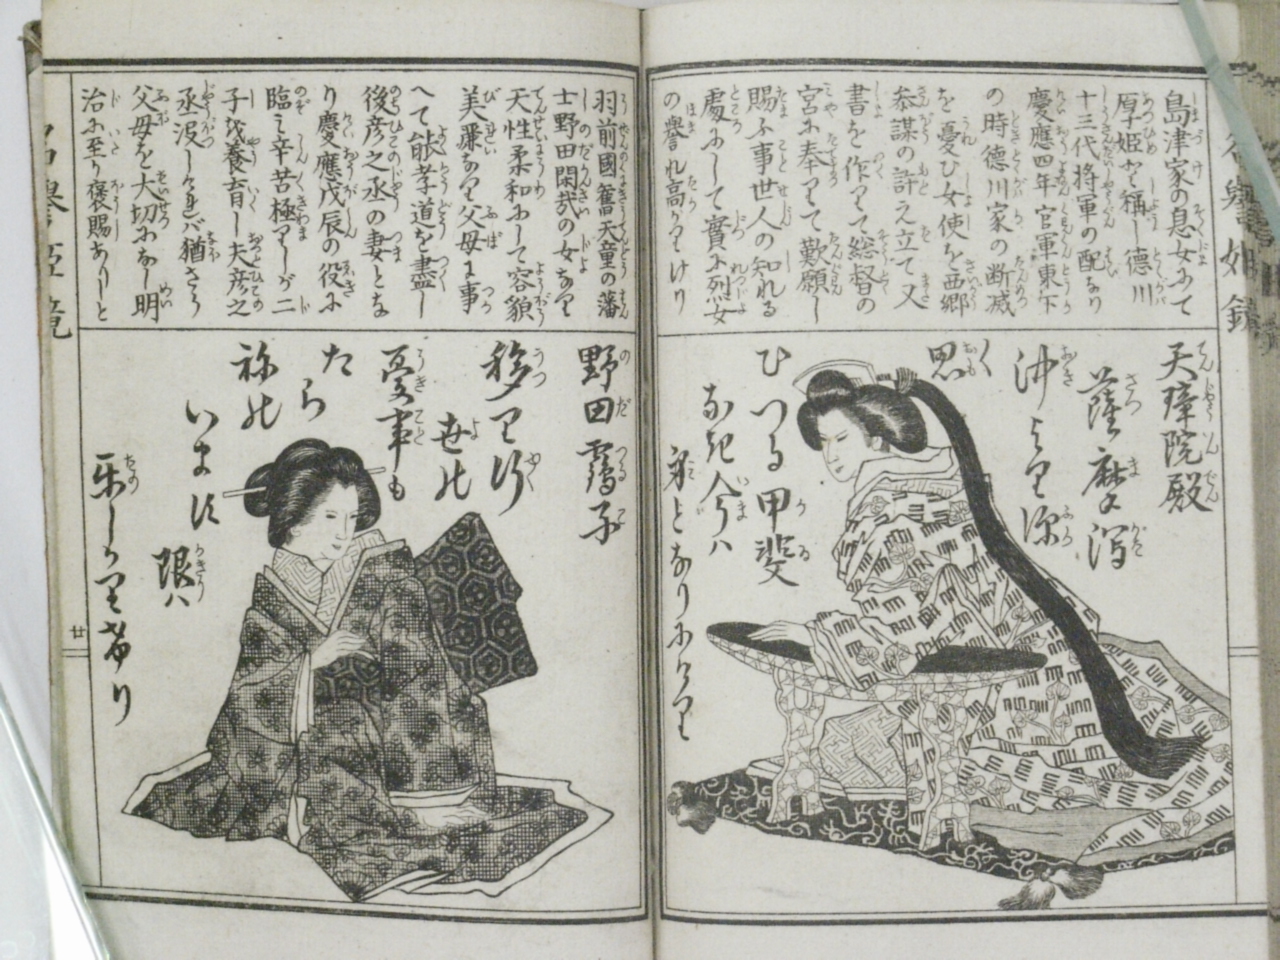 島津家の息女にて
厚姫と稱し德川
十三代将軍の配なり
慶應四年官軍東下
の時德川家の断滅
を憂ひ女使を西郷
参謀の許え立て又
書を作りて総督の
宮に奉りて歎願し
賜ふ事世人の知れる
處にして實に列女
の譽れ高かりけり
天璋院殿
薩摩潟
沖より深
く思
ひつる甲斐
なき今ハ
身となりにけり
羽前國舊天童の藩
士野田閑哉の女なり
天性柔和にして容貌
美麗なり父母に事
へて能孝道を盡し
後彦之丞の妻とな
り慶應戊辰の役に
臨ミ辛苦極りしが二
子を養育し夫彦之
丞没しけれバ猶さら
父母を大切になし明
治に至り褒賜ありしと
野田靏子
移り行
世の
憂事も
たら
ちねの
います
限ハ
楽しかりけり
廿